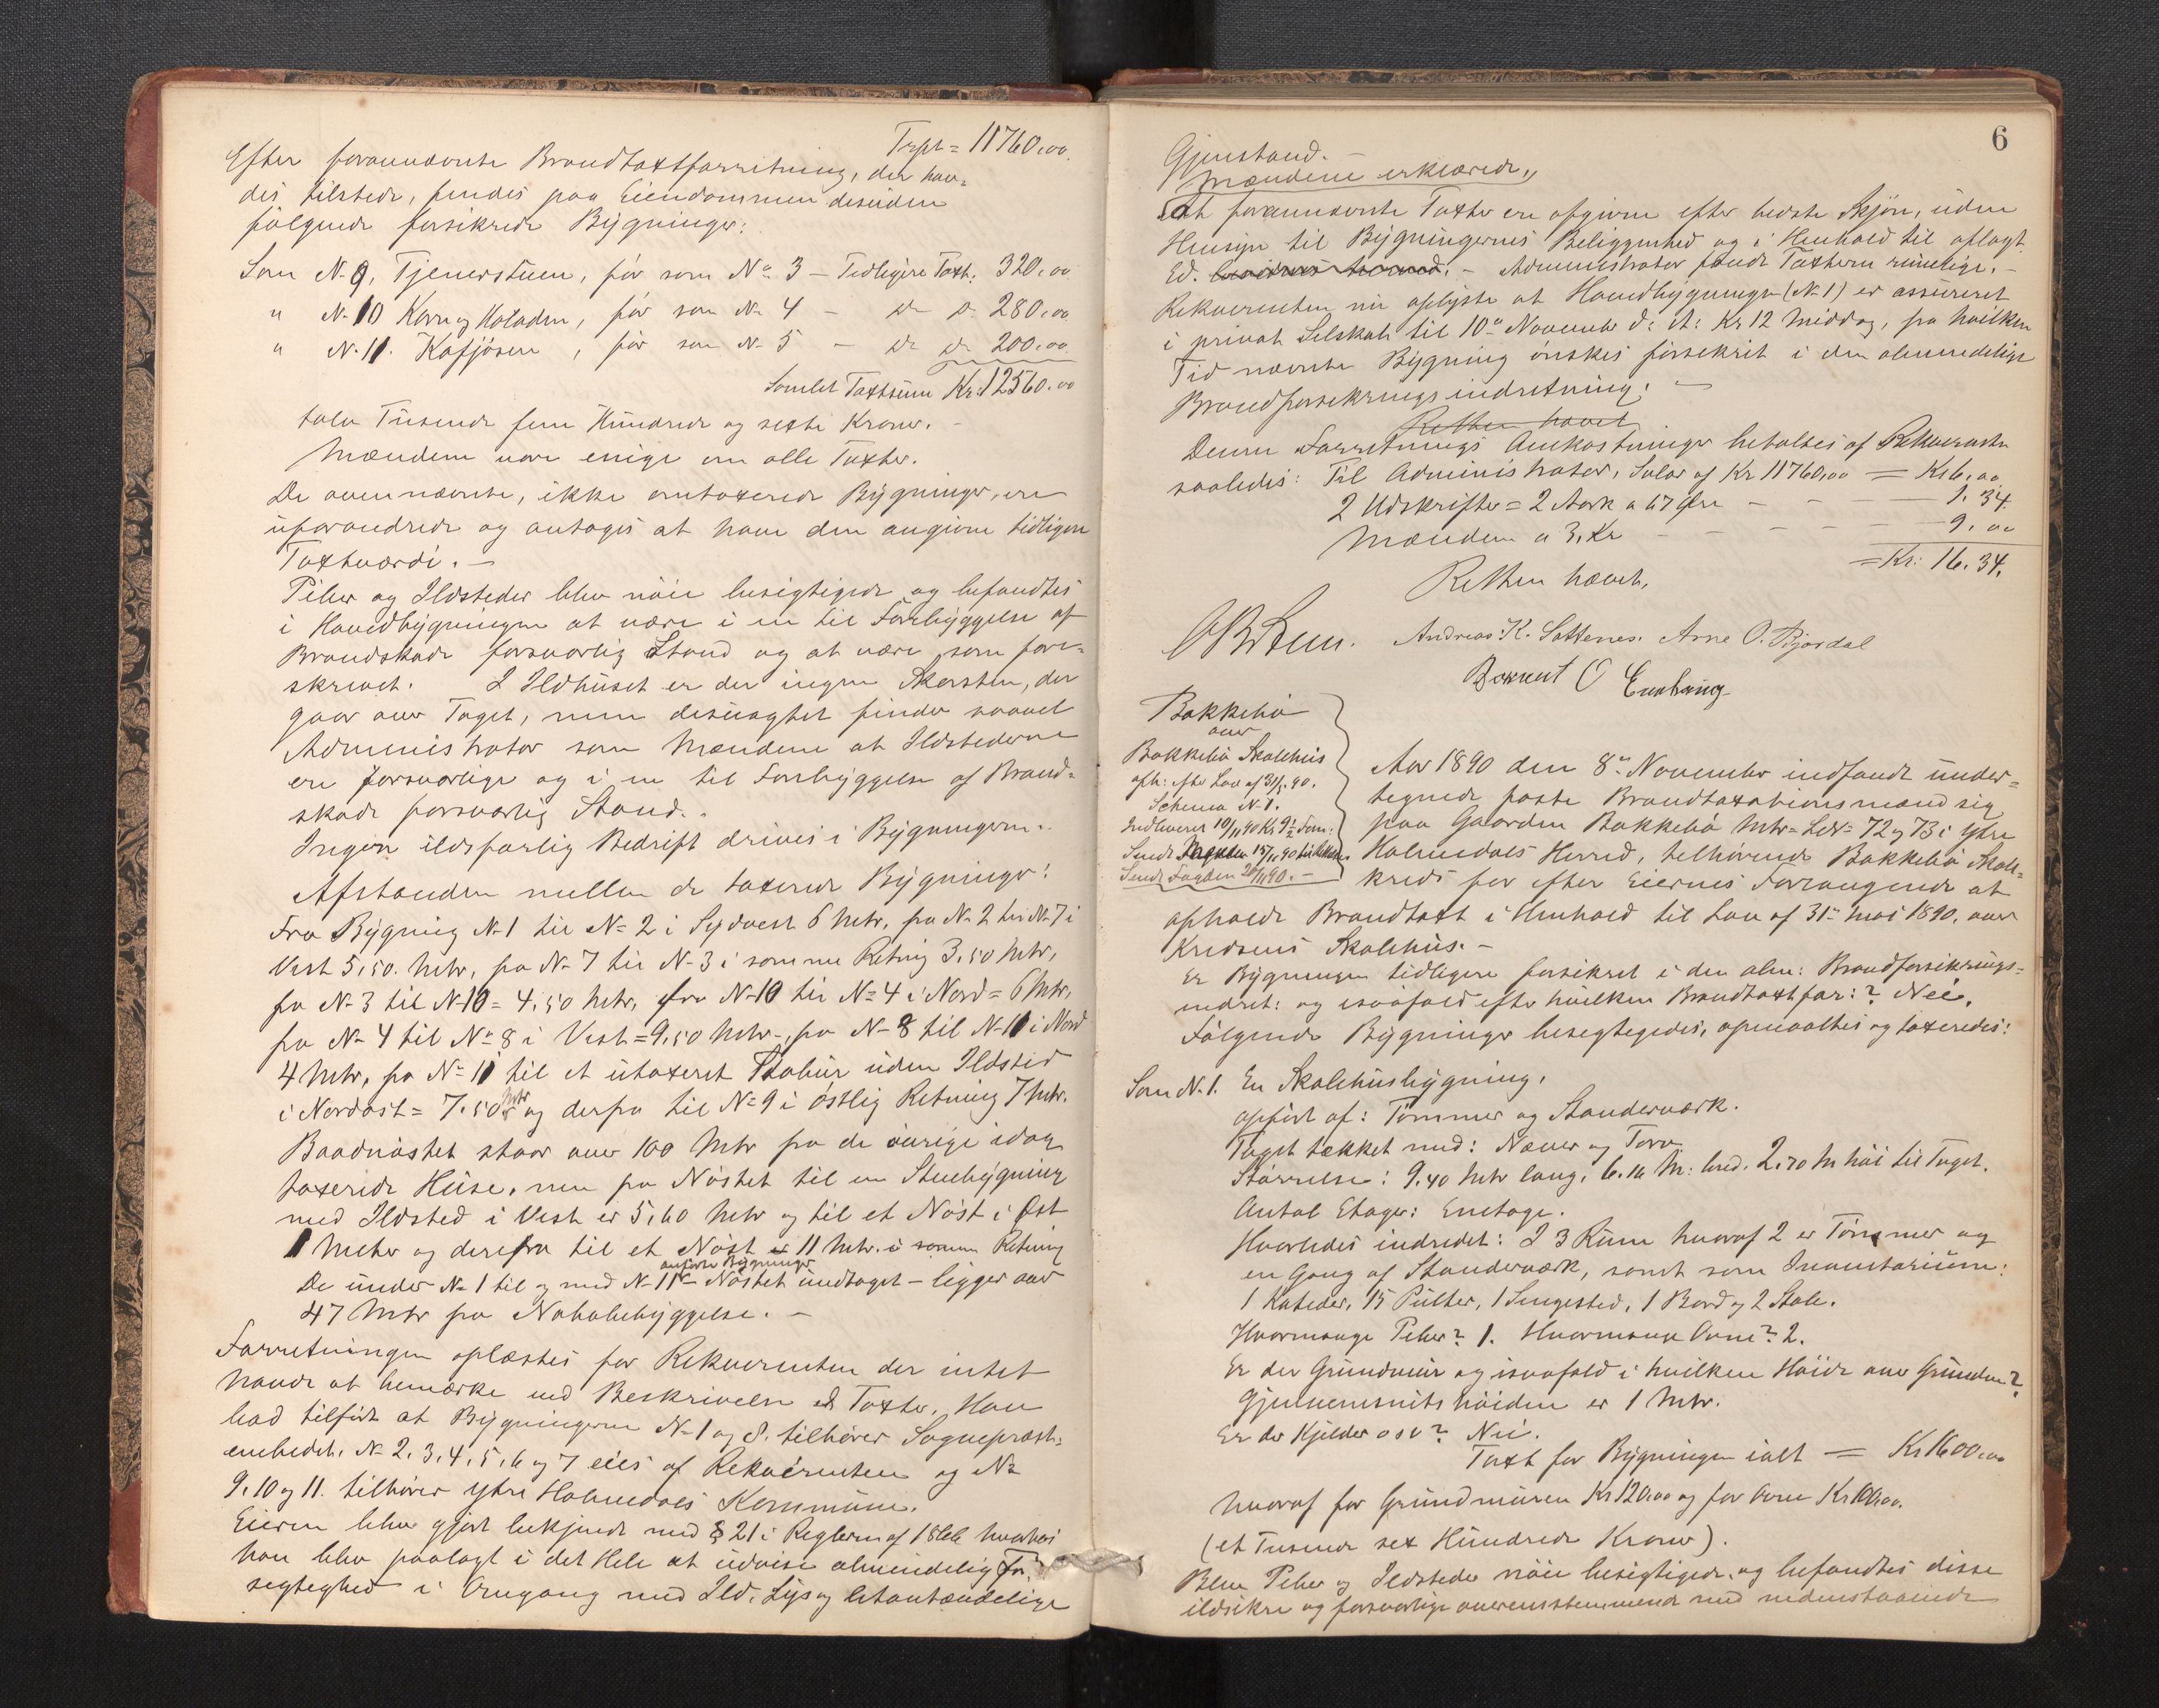 Trspt = 11760,00.
Efter forannævnte Brandtaxtforretning, der hav-
des tilstede, findes paa Eiendommen desuden
følgende forsikrede Bygninger:
Som N. 9, Tjenerstuen, før som No 3 – Tidligere Taxt: 320,00
" N. 10 Korn og Høladen, før som No 4 – do do 280,00
" N. 11. Kofjøsen, før som No 5 – do do 200,00.
Samlet Taxtsum Kr: 12560.00
tolv Tusende fem Hundrede og sexti Kroner. –
Mændene vare enige om alle Taxter.
De ovennævnte, ikke omtaxerede Bygninger, ere
uforandrede og antages at have den angivne tidligere
Taxtværdi. –
Piber og Ildsteder blev nøie besigtigede og befandtes
i Hovedbygningen at være i en til Forebyggelse af
Brandskade forsvarlig Stand og at være som fore-
skrevet. I Ildhuset er der ingen Skorsten, der
gaar over Taget, men desuagtet finder saavel
Administrator som Mændene at Ildstederne
ere forsvarlige og i en til Forebyggelse af Brand-
skade forsvarlig Stand. –
Ingen ildsfarlig Bedrift drives i Bygningerne. –
Afstanden mellem de taxerede Bygninger:
Fra Bygning N. 1 til No 2 i Sydvest 6 Mtr, fra No 2 til No 7 i
Vest 5,50. Mtr, fra No 7 til No 3 i samme Retning 3,50 Mtr,
fra No 3 til No 10 = 4,50 Mtr, fra No 10 til No 4 i Nord = 6 Mtr,
fra No 4 til No 8 i Vest = 9,50 Mtr –, fra No 8 til No 11 i Nord
4 Mtr, fra No 11 til et utaxeret Stabur uden Ildsted
i Nordost = 7,50 Mtr og derfra til No 9 i østlig Retning 7 Mtr.
Baadnøstet staar over 100 Mtr fra de øvrige idag
taxerede Huse, men fra Nøstet til en Stuebygning
med Ildsted i Vest er 5,60 Mtr og til et Nøst i Øst
1 Meter og derefra til et Nøst 11 Mtr. i samme Retning
De under No 1 til og med No 11 anførte Bygninger – Nøstet undtaget – ligger over
47 Mtr fra Nabobebyggelse. –
Forretningen oplæstes for Rekvirenten der intet
havde at bemærke ved Beskrivelse og Taxter. Han
bad tilført at Bygningerne No 1 og 8. tilhører Sognepræst-
embedet, No 2, 3, 4, 5, 6 og 7 eies af Rekvirenten og No
9, 10 og 11. tilhører Ytre Holmedals Kommune.
Eieren blev gjort bekjendt med § 21 i Reglerne af 1846 hvorhos
han blev paalagt i det Hele at udvise almindelig For-
sigtighed i Omgang med Ild, Lys og letantændelige
6
Gjenstand. –
Mændene erklærede,
at forannævnte Taxter ere afgivne efter bedste Skjøn, uden
Hensyn til Bygningernes Beliggenhed og i Henhold til aflagt
Ed. – Administrator fandt Taxterne rimelige. –
Rekvirenten nu oplyste at Hovedbygningen (No 1) er assureret
i privat Selskab til 10de November d: A: Kl 12 Middag, fra hvilken
Tid nævnte Bygning ønskes forsikret i den almindelige
Brandforsikringsindretning. –
Retten hævet
Denne Forretnings Omkostninger betales af Rekvirenten
saaledes: Til Administrator, Salar af Kr 11760,00 = Kr 6,00
2 Udskrifter = 2 Ark a 67 Øre – – – – 1, 34.
Mændene a 3. Kr – – – – 9,00
= Kr: 16. 34.
Retten hævet.
Andreas K. Sottenes. Arne O. Bjordal
Berent O
Bakkebø
over
Bakkebø Skolehus
afh: efter Lov af 31/5 90.
Schema N. 1.
Indleveret 10/11 90 Kl 9½ Form:
Sendt Fogden 20/11 90. –
Aar 1890 den 8de November indfandt under-
tegnede faste Brandtaxationsmænd sig
paa Gaarden Bakkebø Mtr- Lno 72 og 73 i Ytre
Holmedals Herred, tilhørende Bakkebø Skole-
kreds for efter Eiernes Forlangende at
afholde Brandtaxt i Henhold til Lov af 31te Mai 1890, over
Kredsens Skolehus. –
Er Bygningen tidligere forsikret i den alm: Brandforsikrings-
indret: og isaafald efter hvilken Brandtaxtfor:? Nei.
Følgende Bygninger besigtigedes, opmaaltes og taxeredes:
Som N. 1. En Skolehusbygning,
opført af: Tømmer og Standerværk.
Taget tækket med: Næver og Torv
Størrelse: 9,40 Mtr lang, 6,10 M: bred. 2,70 M høi til Taget.
Antal Etager: Enetage.
Hvorledes indredet: I 3 Rum hvoraf 2 er Tømmer og
en Gang af Standerværk, samt som Inventarium:
1 Kateder, 15 Pulter, 1 Sengested, 1 Bord og 2 Stole.
Hvormange Piber? 1. Hvormange Ovne? 2.
Er der Grundmur og isaafald i hvilken Høide over Grunden?
Gjennemsnitshøiden er 1 Mtr.
Er der Kjelder osv? Nei.
Taxt for Bygningen ialt = Kr 1600,00
hvoraf for Grundmuren Kr 120,00 og for Ovne Kr 100,00.
(et Tusende sex Hundrede Kroner).
Blev Piber og Ildsteder nøie besigtigede, og befandtes disse
ildsikre og forsvarlige overensstemmende med nedenstaaende